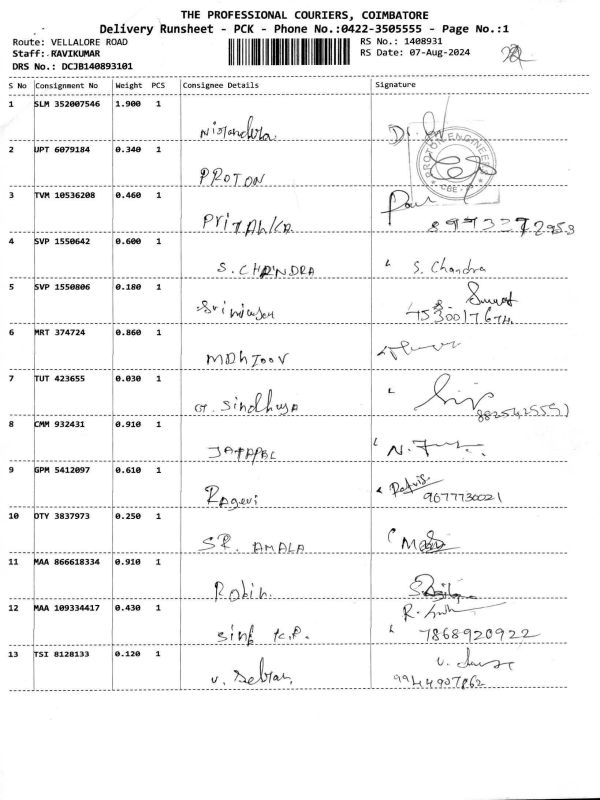 THE PROFESSIONAL COURIERS, COIMBATORE
Delivery Runsheet - PCK - Phone No.:0422-3505555 - Page No.:1
Route: VELLALORE ROAD RS No.: 1408931
Staff: RAVIKUMAR RS Date: 07-Aug-2024
DRS No.: DCJB140893101
S No Consignment No Weight PCS Consignee Details Signature
1 SLM 352007546 1.900 1
PROTON ENGINEERS
CBE
2 UPT 6079184 0.340 1
PROTON
3 TVM 10536208 0.460 1
4 SVP 1550642 0.600 1
S. CHANDRA S. Chandra
5 SVP 1550806 0.180 1
6 MRT 374724 0.860 1
7 TUT 423655 0.030 1
G. Sindhuja
8 CMM 932431 0.910 1
9 GPM 5412097 0.610 1
Ragavi
9677730021
10 OTY 3837973 0.250 1
SR. AMALA
11 MAA 866618334 0.910 1
Robin.
12 MAA 109334417 0.430 1
7868920922
13 TSI 8128133 0.120 1
9944907862